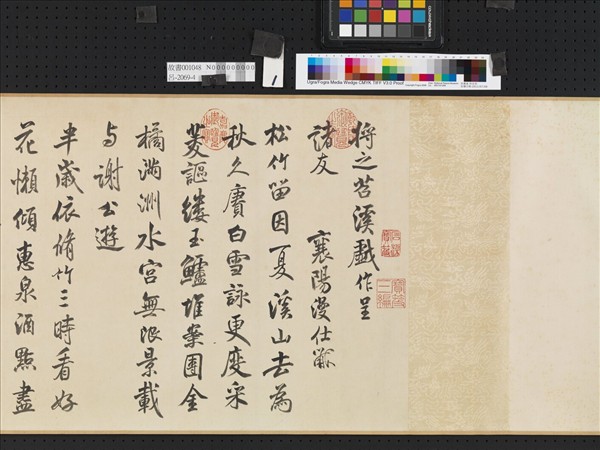 故書001048 N000000000
呂-2069-4
Ugra/Fogra Media Wedge CMYK TIFF V3.0 Proof
寶笈
三編
將之苕溪戲作呈
諸友 襄陽漫仕黻
松竹留因夏溪山去為
秋久賡白雪詠更度采
菱謳縷玉鱸堆案團金
橘滿洲水宮無限景載
与謝公遊
半歲依脩竹三時看好
花懶傾惠泉酒點盡